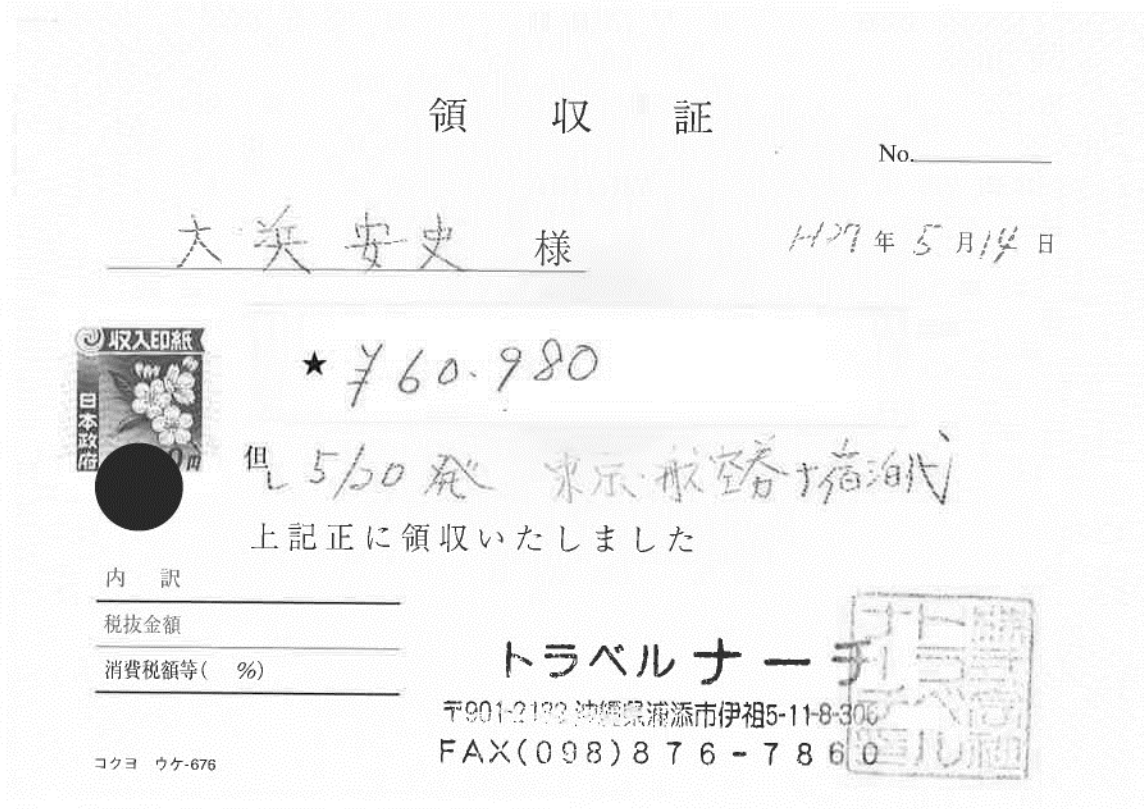 領収証
No.
大浜安史 様
H27年5月14日
収入印紙
日本政府
★ ¥60.980
但し 5/20発 東京・航空券+宿泊代
上記正に領収いたしました
内訳
税抜金額
消費税額等( %)
トラベルナーチ
〒901-2132 沖縄県浦添市伊祖5-11-8-306
FAX(098)876-7860
コクヨ ウケ-676